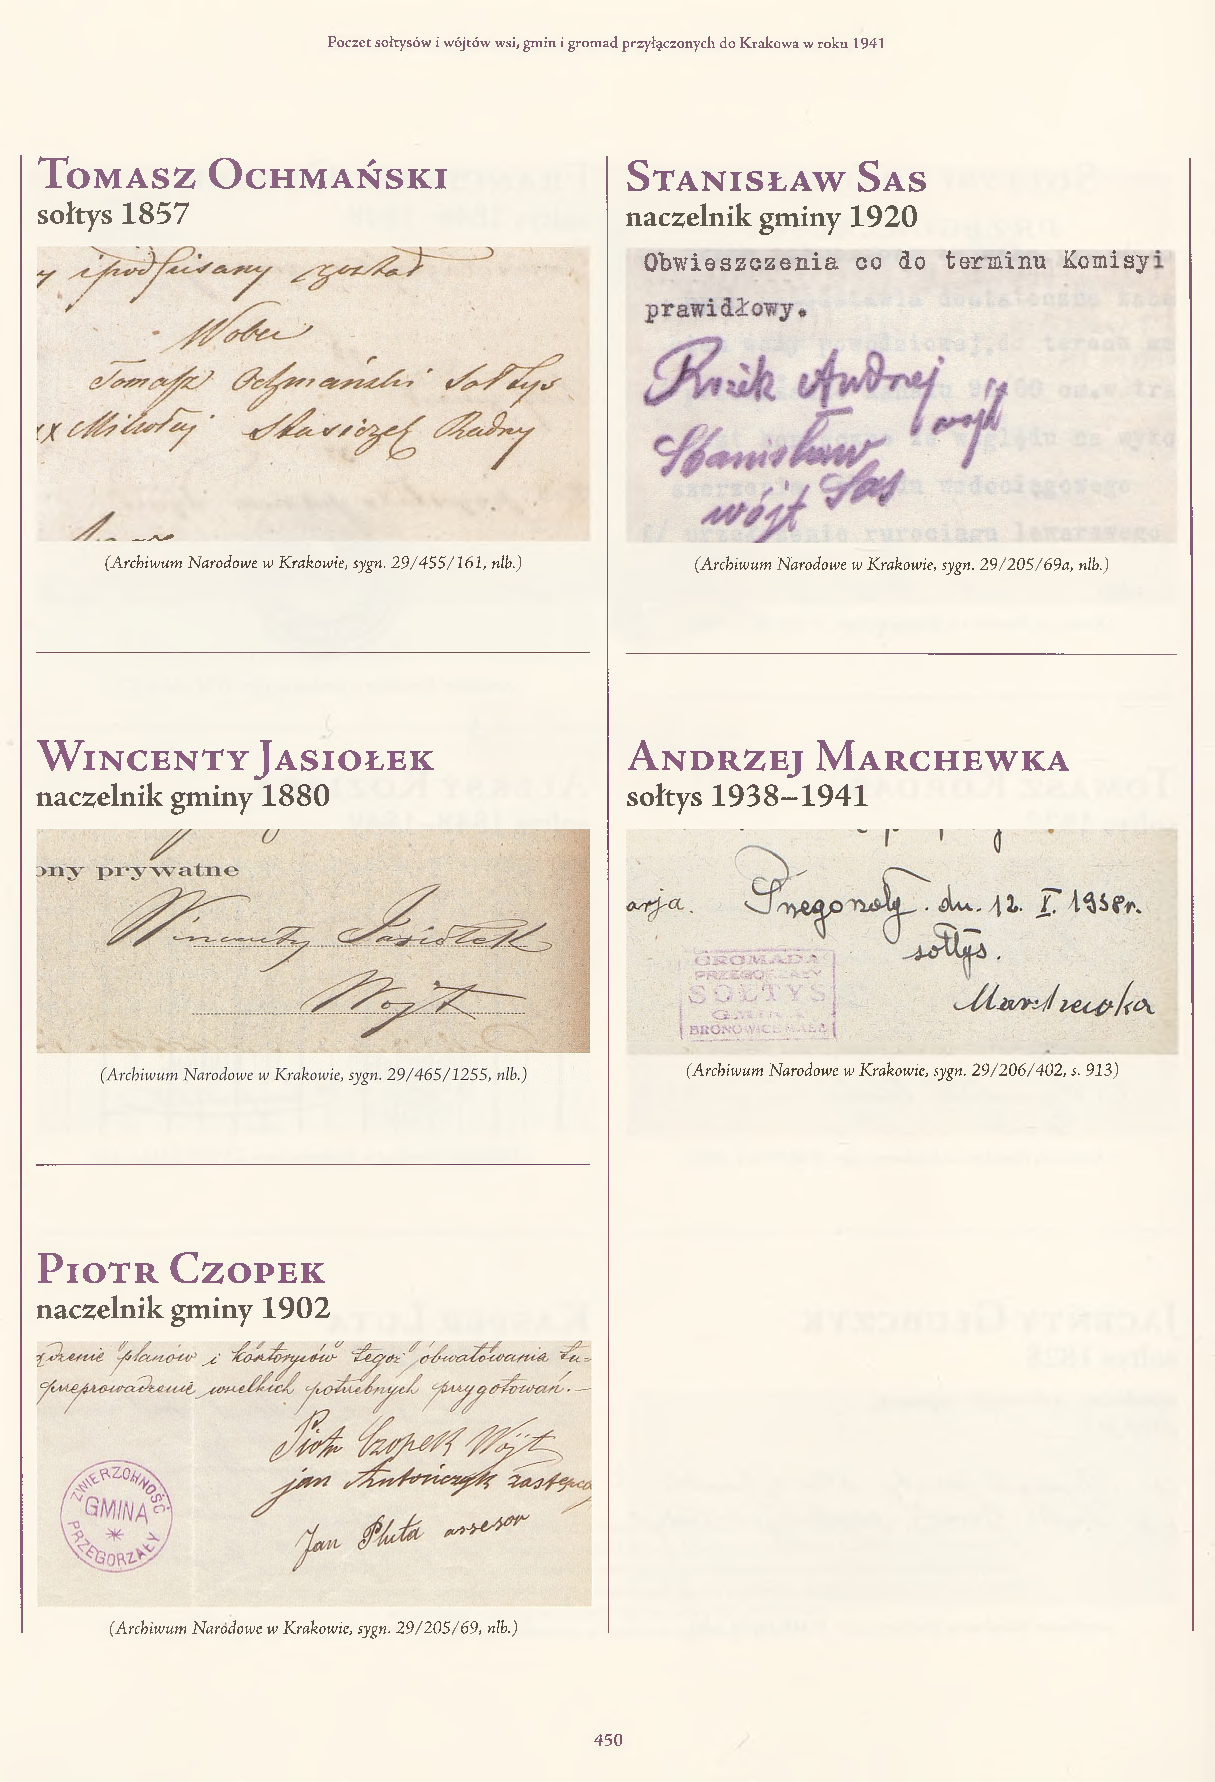 Poczet sołtysów i wójtów wsi, gmin i gromad przyłączonych do Krakowa w roku 1941
Tomasz Ochmański
sołtys 1857
y i podpisany został
Wobec
Tomasz Ochmański Sołtys
xx Mikołaj Stasiczek Radny
(Archiwum Narodowe w Krakowie, sygn. 29/455/161, nlb.)
Wincenty Jasiołek
naczelnik gminy 1880
ony prywatne
Wincenty Jasiołek
Wojt
(Archiwum Narodowe w Krakowie, sygn. 29/465/1255, nlb.)
Piotr Czopek
naczelnik gminy 1902
planów i kosztorysów tegoż obwałowania
przeprowadzenie wszelkich potrzebnych przygotowań.—
Piotr Czopek Wójt
jan Antończyk zastępca
Jan Pluta assesor
ZWIERZCHNOŚĆ
GMINA
PRZEGORZAŁY
(Archiwum Narodowe w Krakowie, sygn. 29/205/69, nlb.)
Stanisław Sas
naczelnik gminy 1920
Obwieszczenia co do terminu Komisyi
prawidłowy.
Andrzej
wójt
Stanisław
Sas
wójt
(Archiwum Narodowe w Krakowie, sygn. 29/205/69a, nlb.)
Andrzej Marchewka
sołtys 1938–1941
arja. Przegorzały. dn. 12. I. 1938r.
sołtys.
Marchewka
GROMADA
PRZEGORZAŁY
SOŁTYS
GMINA
BRONOWICE MAŁE
(Archiwum Narodowe w Krakowie, sygn. 29/206/402, s. 913)
450